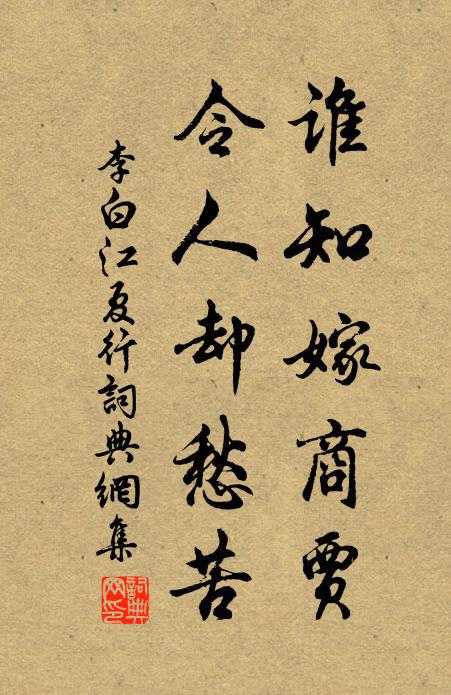 誰知嫁商賈
令人却愁苦
李白江夏行詞典網集
詞典
网印